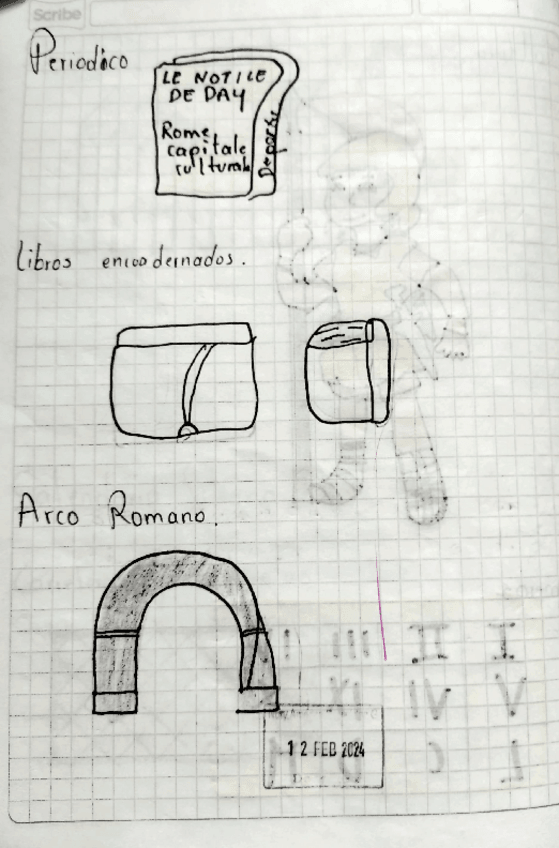 Scribe
Periodico
LE NOTILE
DE DAY
Rome
capitale
culturale
Deports
Libros encoodernados.
Arco Romano.
12 FEB 2024
I II III
V VI IX
L C D M